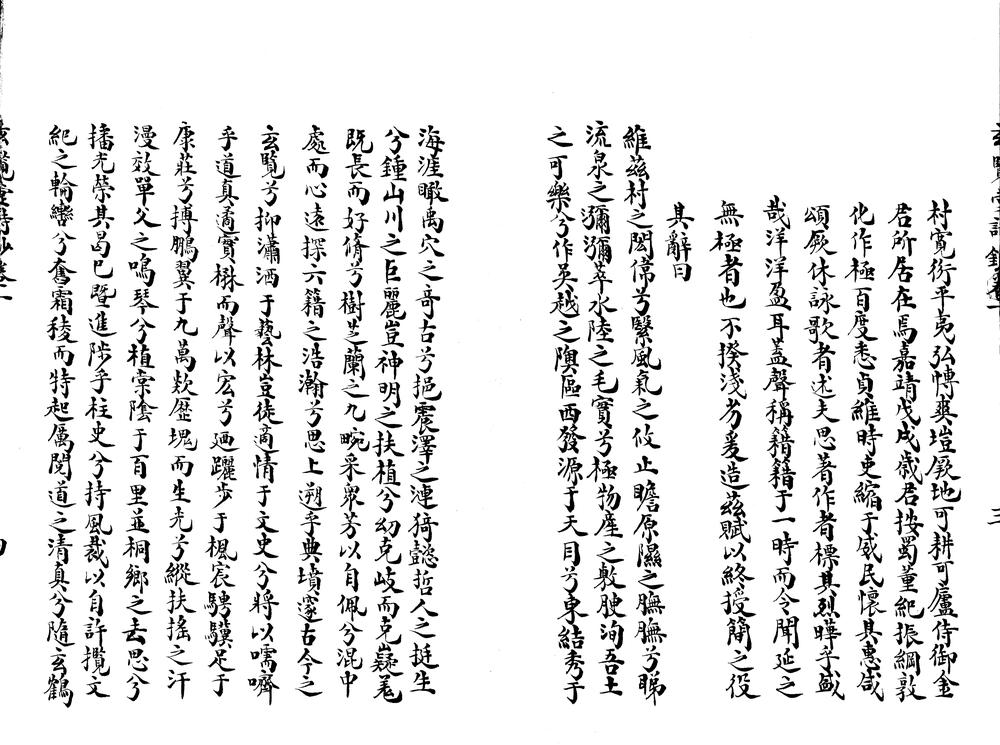 村寬衍平夷弘愽爽塏厥地可耕可廬侍御金
君所居在焉嘉靖戊戌歲君按蜀董紀振綱敦
化作極百度悉貞維時吏縮于威民懷其惠咸
頌厥休詠歌者述夫思著作者標其烈曄乎盛
哉洋洋盈耳蓋聲稱籍籍于一時而令聞延之
無極者也不揆淺劣爰造茲賦以終授簡之役
其辭曰
維茲村之閎偉兮繄風氣之攸止瞻原隰之膴膴兮睇
流泉之瀰瀰萃水陸之毛實兮極物產之敷腴洵吾土
之可樂兮作吳越之隩區西發源于天目兮東結秀于
海涯瞰禹穴之奇古兮挹震澤之漣猗懿哲人之挺生
兮鍾山川之巨麗豈神明之扶植兮幼克岐而克嶷羌
既長而好脩兮樹芝蘭之九畹采衆芳以自佩兮混中
處而心遠探六籍之浩瀚兮思上遡乎典墳邃古今之
玄覽兮抑瀟洒于藝林豈徒適情于文史兮將以嚅嚌
乎道真遹實楙而聲以宏兮迺躧步于楓宸騁驥足于
康莊兮搏鵬翼于九萬欻歷塊而生光兮縱扶搖之汗
漫效單父之鳴琴兮植棠陰于百里並桐鄉之去思兮
播光榮其曷巳暨進陟乎柱史兮持風裁以自許攬文
紀之輪轡兮奮霜稜而特起厲閱道之清真兮隨玄鶴